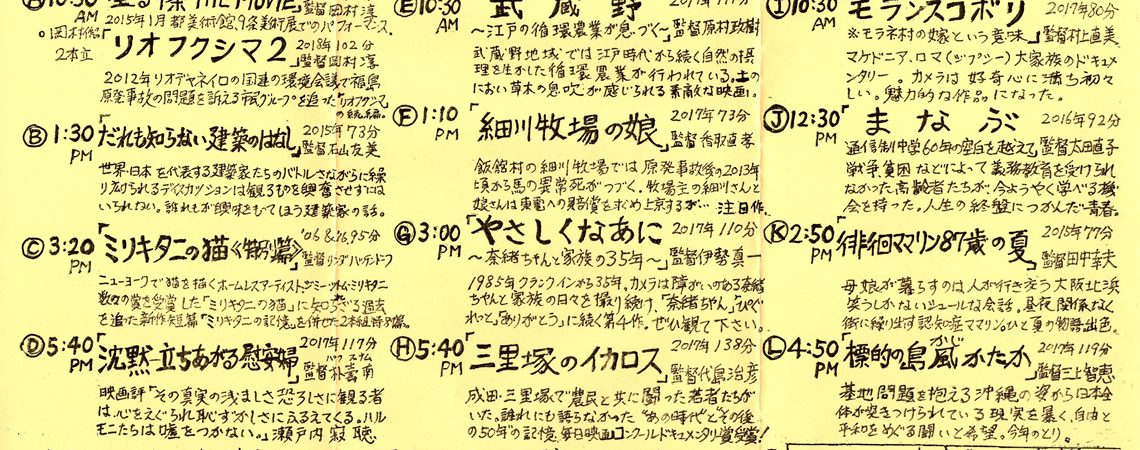 Ⓐ10:30 AM
監督岡村淳
2015年1月都美術館9条美術展でのパフォーマンス。
2本立
リオフクシマ2 2018年102分
監督岡村淳
2012年リオデジャネイロの国連の環境会議で福島
原発事故の問題を訴える市民グループを追った「リオフクシマ」
の続編。
Ⓑ1:30 PM 「だれも知らない建築のはなし」 2015年73分
監督石山友美
世界、日本を代表する建築家たちのバトルさながらに繰
り広げられるディスカッションは観るものを興奮させずには
いられない。誰れもが興味をもてほう建築家の話。
Ⓒ3:20 PM 「ミリキタニの猫《特別篇》」 '06&16,95分
監督リンダ・ハッテンドーフ
ニューヨークで猫を描くホームレスアーティスト・ジミー・ミリキタニ
数々の賞を受賞した「ミリキタニの猫」に知らざる過去
を追った新作短篇「ミリキタニの記憶」を併せた2本組特別篇。
Ⓓ5:40 PM 「沈黙-立ちあがる慰安婦」 2017年117分
パク スナム
監督朴壽南
映画評「その真実の浅ましさ恐ろしさに観る者
は、心をえぐられ恥ずかしさにふるえてくる。ハル
モニたちは嘘をつかない。」瀬戸内寂聴
Ⓔ10:30 AM 武蔵野
〜江戸の循環農業が息づく〜」監督原村政樹
武蔵野地域では江戸時代から続く自然の摂
理を生かした循環農業が行われている。土の
におい草木の息吹が感じられる素敵な映画。
Ⓕ1:10 PM 「細川牧場の娘」 2017年73分
監督香取直孝
飯舘村の細川牧場では原発事故後の2013年
頃から馬の異常死がつづく。牧場主の細川さんと
娘さんは東電への賠償を求め上京するが… 注目作
Ⓖ3:00 PM 「やさしくなあに 2017年110分
〜奈緒ちゃんと家族の35年〜」監督伊勢真一
1985年クランクインから35年、カメラは障がいのある奈緒
ちゃんと家族の日々を撮り続け、「奈緒ちゃん」「ぴぐ
れっと」「ありがとう」に続く第4作。ぜひ観て下さい。
Ⓗ5:40 PM 「三里塚のイカロス」 2017年138分
監督代島治彦
成田・三里塚で農民と共に闘った若者たちが
いた。誰れにも語らなかった "あの時代"と"その後
の50年"の記憶。毎日映画コンクールドキュメンタリー賞受賞!
Ⓘ10:30 AM 「モランスコボリ 2017年80分
※モラネ村の嫁という意味」監督村上直美
マケドニア、ロマ(ジプシー)大家族のドキュメ
ンタリー。カメラは好奇心に満ち初々
しい。魅力的な作品になった。
Ⓙ12:30 PM 「まなぶ 2016年92分
通信制中学60年の空白を越えて」監督太田直子
戦争、貧困などによって義務教育を受けられ
なかった高齢者たちが、今ようやく学べる機
会を持った。人生の終盤につかんだ青春。
Ⓚ2:50 PM 「徘徊ママリン87歳の夏」 2015年77分
監督田中幸夫
母娘が暮らすのは人が行き交う大阪北浜
笑うしかないシュールな会話。昼夜関係なく
街に繰り出す認知症ママリンのひと夏の物語、出色。
Ⓛ4:50 PM 「標的の島 風かたか」 2017年119分
かじ
監督三上智恵
基地問題を抱える沖縄の姿から日本全
体が突きつけられている現実を暴く、自由と
平和をめぐる闘いと希望。今年のとり。